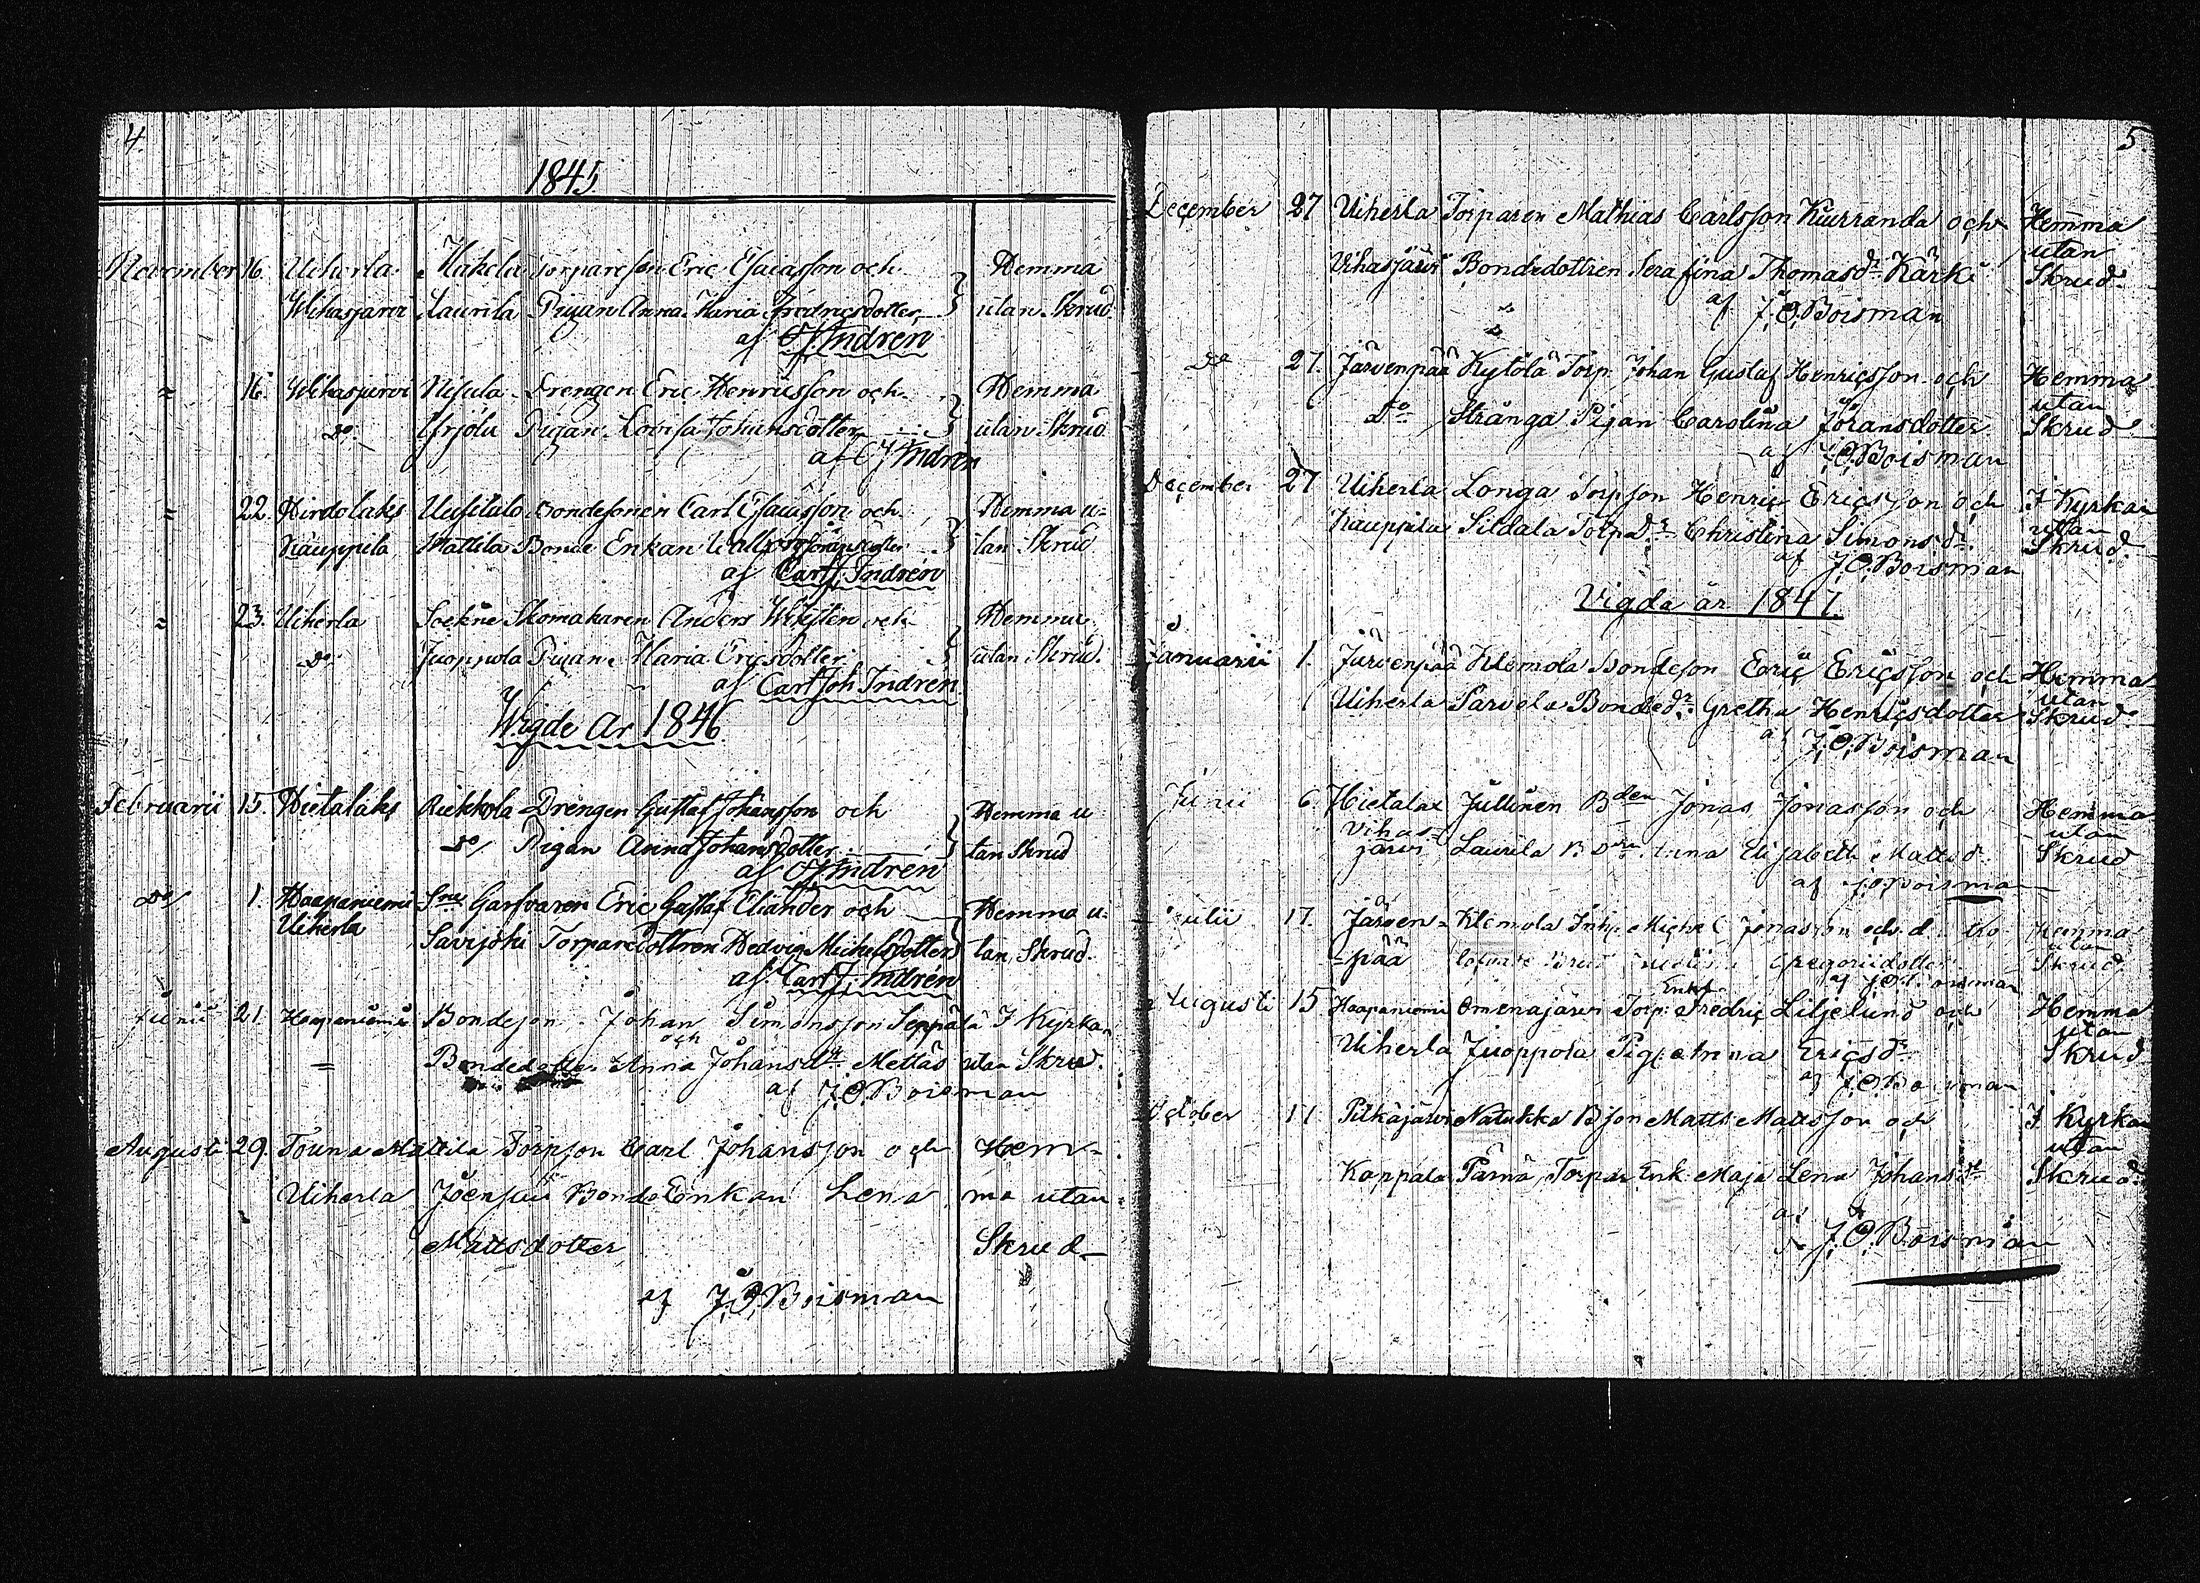 4
1845
November 16. Uiherla Mäkelä Torparesson Eric Esaiasson och Hemma
Wihasjärvi Laurila Pigan Anna Maria Fredricsdotter utan Skrud.
af CJ Indren
= 16. Wihasjärvi Nisula Drengen Eric Henricsson och Hemma
Do Yrjölä Pigan Lovisa Johansdotter utan Skrud
af CJ Indren
= 22. Hirdolaks Bondesonen Carl Esaiasson och Hemma u=
Kauppila Mattila Bonde Enkan tan Skrud
af Carl J. Indren
= 23. Uiherla Sockne Skomakaren Anders och Hemma
Do Juoppola Pigan Maria Ericsdotter utan Skrud.
af Carl Joh Indren
Wigde År 1846
Februarii 15. Hietalaks Riekkola Drengen Gustaf Johansson och Hemma u
Do Pigan Anna Johansdotter tan Skrud
af CJ Indren
Do 1. Haapaniemi Sne Garfvaren Eric Gustaf Eliander och Hemma u=
Uiherla
Savijoki Torparedottren Hedvig Michelsdotter tan Skrud.
af Carl J. Indren
Junii 21. Haapaniemi Bondeson Johan Simonsson Seppälä I Kyrkan
och
= Bondedotter Anna Johansdr Mettäs utan Skrud.
af J.O.Boisman
Augusti 29. Touna Mattila Torpson Carl Johansson och Hem-
Uiherla Joensuu Bonde Enkan Lena ma utan
Mattsdotter Skrud
af J.O.Boisman
5.
December 27 Uiherla Torparen Mathias Carlsson Kiurranda och Hemma
utan
Vihasjärvi Bondedottren Serafina Thomasdr Kärki Skrud.
af J.O.Boisman
Do 27. Järvenpää Kytölä Torp. Johan Gustaf Henricsson och Hemma
utan
Do Stränga Pigan Carolina Göransdotter Skrud
af J.O.Boisman
December 27 Uiherla Longa Torpson Henric Ericsson och I Kyrkan
utan
Kauppila Sildala Torpdr Christina Simonsdr. Skrud.
af J.O.Boisman
Vigda år 1847.
Januarii 1. Järvenpää Klemola Bondeson Eric Ericsson och Hemma
utan
Uiherla Parvela Bondedr. Gretha Henricsdotter Skrud.
af J.O.Boisman
Junii 6. Hietalax Jullinen Bden Jonas Jonasson och Hemma
utan
Vihas=
järvi Laurila Anna Elisabeth Mattsd. Skrud
af J.O.Boisman
Julii 17. Järven= Klemola Inh. Michel Jonasson och d. Hemma
utan
=pää Gregoriidotter Skrud.
af J.O.Boisman
Enkl.
Augusti 15 Haapaniemi Omenajärvi Torp. Fredric Liljelund och Hemma
utan
Uiherla Juoppola Ericsdr Skrud
af J.O.Boisman
October 17 Pitkäjärvi Natukka Bson Matts Mattsson och I Kyrkan
utan
Kappala Pärnä Torpar Enk. Maja Lena Johansdr Skrud.
af
J.O.Boisman